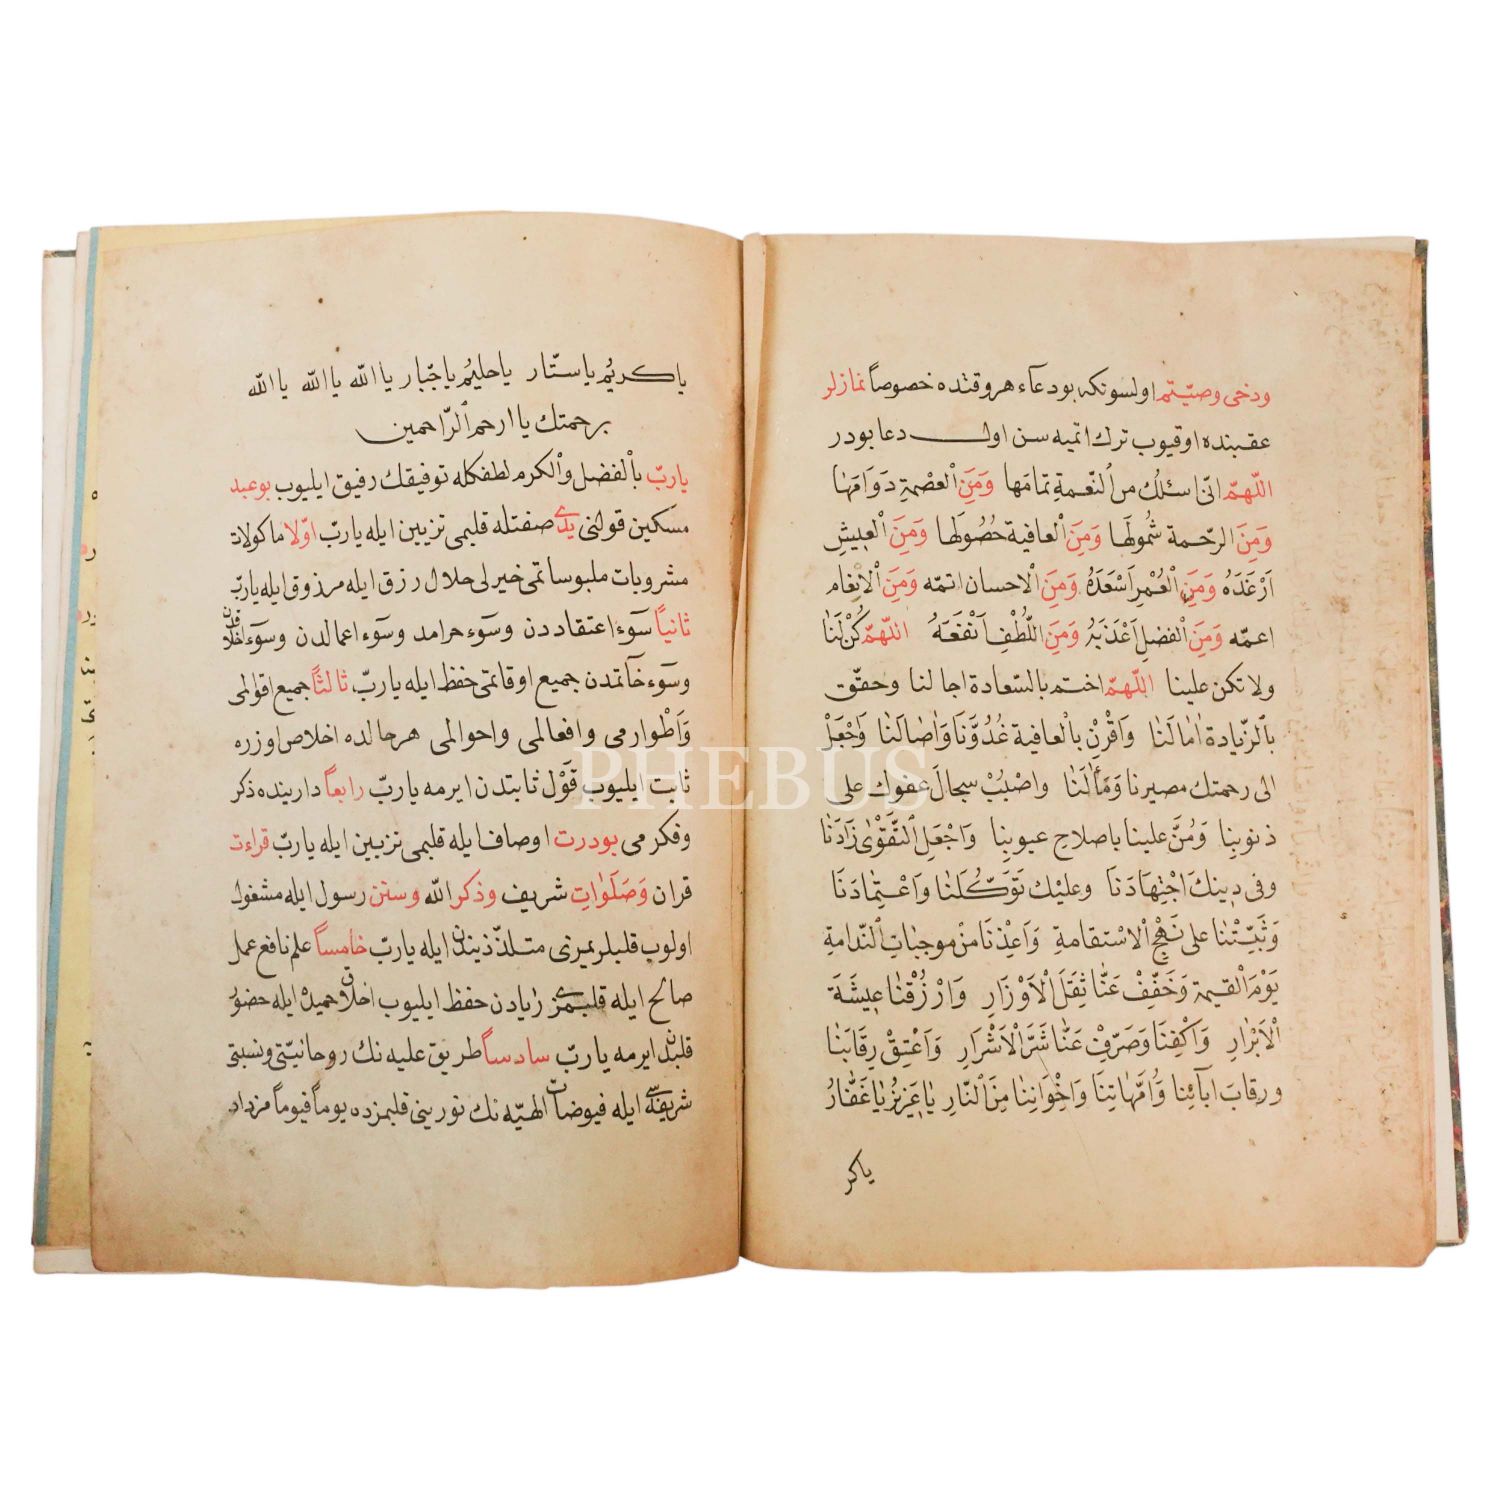 ودخى وصيّتم اولسونكه بودعآء هروقتده خصوصاً نمازلر
عقبنده اوقيوب ترك اتميه سن اول دعا بودر
اللّهمّ انّى اسئلك من النّعمةِ تمامَها وَمَنِ العصْمةِ دَوَامَهَا
وَمِنَ الرحّمة شُمُولهَا وَمَنِ العافية حُصُولَها وَمَنِ العيشِ
اَرْغَدَهُ وَمَنِ العُمْرِ اَسْعَدَهُ وَمَنَ الاحسان اتمّه وَمَنِ الاِنِعَام
اعمّه وَمَنِ الفضلِ اَعْذَبَهُ وَمَنَ اللُّطْفِ اَنْفَعَهُ اللّهمّ كُنْ لَنَا
ولا تكن علينا اللّهمّ اختم بالسّعادة اجالنا وحقّق
بالزّيادة اٰمالَنَا وَاَقْرِنْ بالعافية غُدُوَّنَا وَاٰصَالَنَا وَجْعَلْ
الى رحمتك مصيرنا وَمَاٰلَنَا واصْبُبْ سِجالَ عفوك على
ذنوبِنا وَمُنَّ علينا باصلاحِ عيوبِنا وَاجْعَلِ التَّقْوٰى زَادَنَا
وفى دينكَ اجْتِهَادَنَا وعليْك تَوَكّلَنَا وَاعْتِمَادَنَا
وَثَبِّتْنَا على نَهْجِ الْاسْتقامةِ وَاَعِذْنَا مِنْ موجباتِ النّدامةِ
يَوْمَ القيمةِ وَخَفِّفْ عَنَّا ثِقَلَ الْاَوْزَارِ وَارْزُقْنَا عيشَةَ
الْاَبْرَارِ وَاكْفِنَا وَصَرِّفْ عَنَّا شَرَّ الْاَشْرَارِ وَاَعْتِقْ رِقَابَنَا
ورِقابَ اٰبآئِنا وَاُمَّهَاتِنَا وَاِخْوَانِنَا مِنَ النَّارِ يَا عَزِيزُ يَا غَفَّارُ
ياكر
ياكريُم ياستّار ياحليُم ياجّبار يا اللّه يا اللّه يا اللّه
برحمتك يا ارحم الرّاحمين
ياربّ بالفضل والكرم لطفكله توفيقك رفيق ايليوب بوعبد
مسكين قولنى يدى صفتله قلبمى تزيين ايله ياربّ اوّلا ماكولات
مشروبات ملبوساتمى خيرلى حلال رزق ايله مرذوق ايله ياربّ
ثانياً سَوء اعتقاددن وسَوء حرامد وسَوء اعمالدن وسَوء اخلاقدن
وسَوء خآتمدن جميع اوقاتمى حفظ ايله ياربّ، ثالثاً جميع اقوالمى
وَاَطْوارمى وافعالمى واحوالمى هرحالده اخلاص اوزره
ثابت ايليوب قَوْل ثابتدن ايرمه ياربّ رابعاً دارينده ذكر
وفكرمى بودرت اوصاف ايله قلبمى تزيين ايله ياربّ قراءت
قران وَصَلَوٰاتِ شريف وذكر اللّه وسنن رسول ايله مشغول
اولوب قلبلريمزى متلذّذينلدن ايله ياربّ خامساً علم نافع عمل
صالح ايله قلبمزى زيادن حفظ ايليوب اخلاق حميده ايله حضور
قلبدن ايرمه ياربّ سادساً طريق عليه نك روحانيّتى ونسبتى
شريفهسى ايله فيوضات الهيّه نك نورينى قلبمزده يوماً فيوماً مزداد
PHEBUS